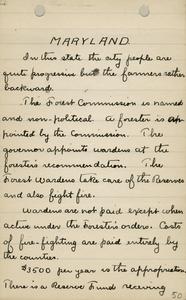 MARYLAND.
In this state the city people are
quite progressive but the farmers rather
backward.
The Forest Commission is named
and non-political. A forester is ap-
pointed by the Commission. The
governor appoints wardens at the
forester's recommendation. The
Forest Wardens take care of the Reserves
and also fight fire.
Wardens are not paid except when
active under the Forester's orders. Costs
of fire-fighting are paid entirely by
the counties.
$3500 per year is the appropriation.
There is a Reserve Fund receiving
50